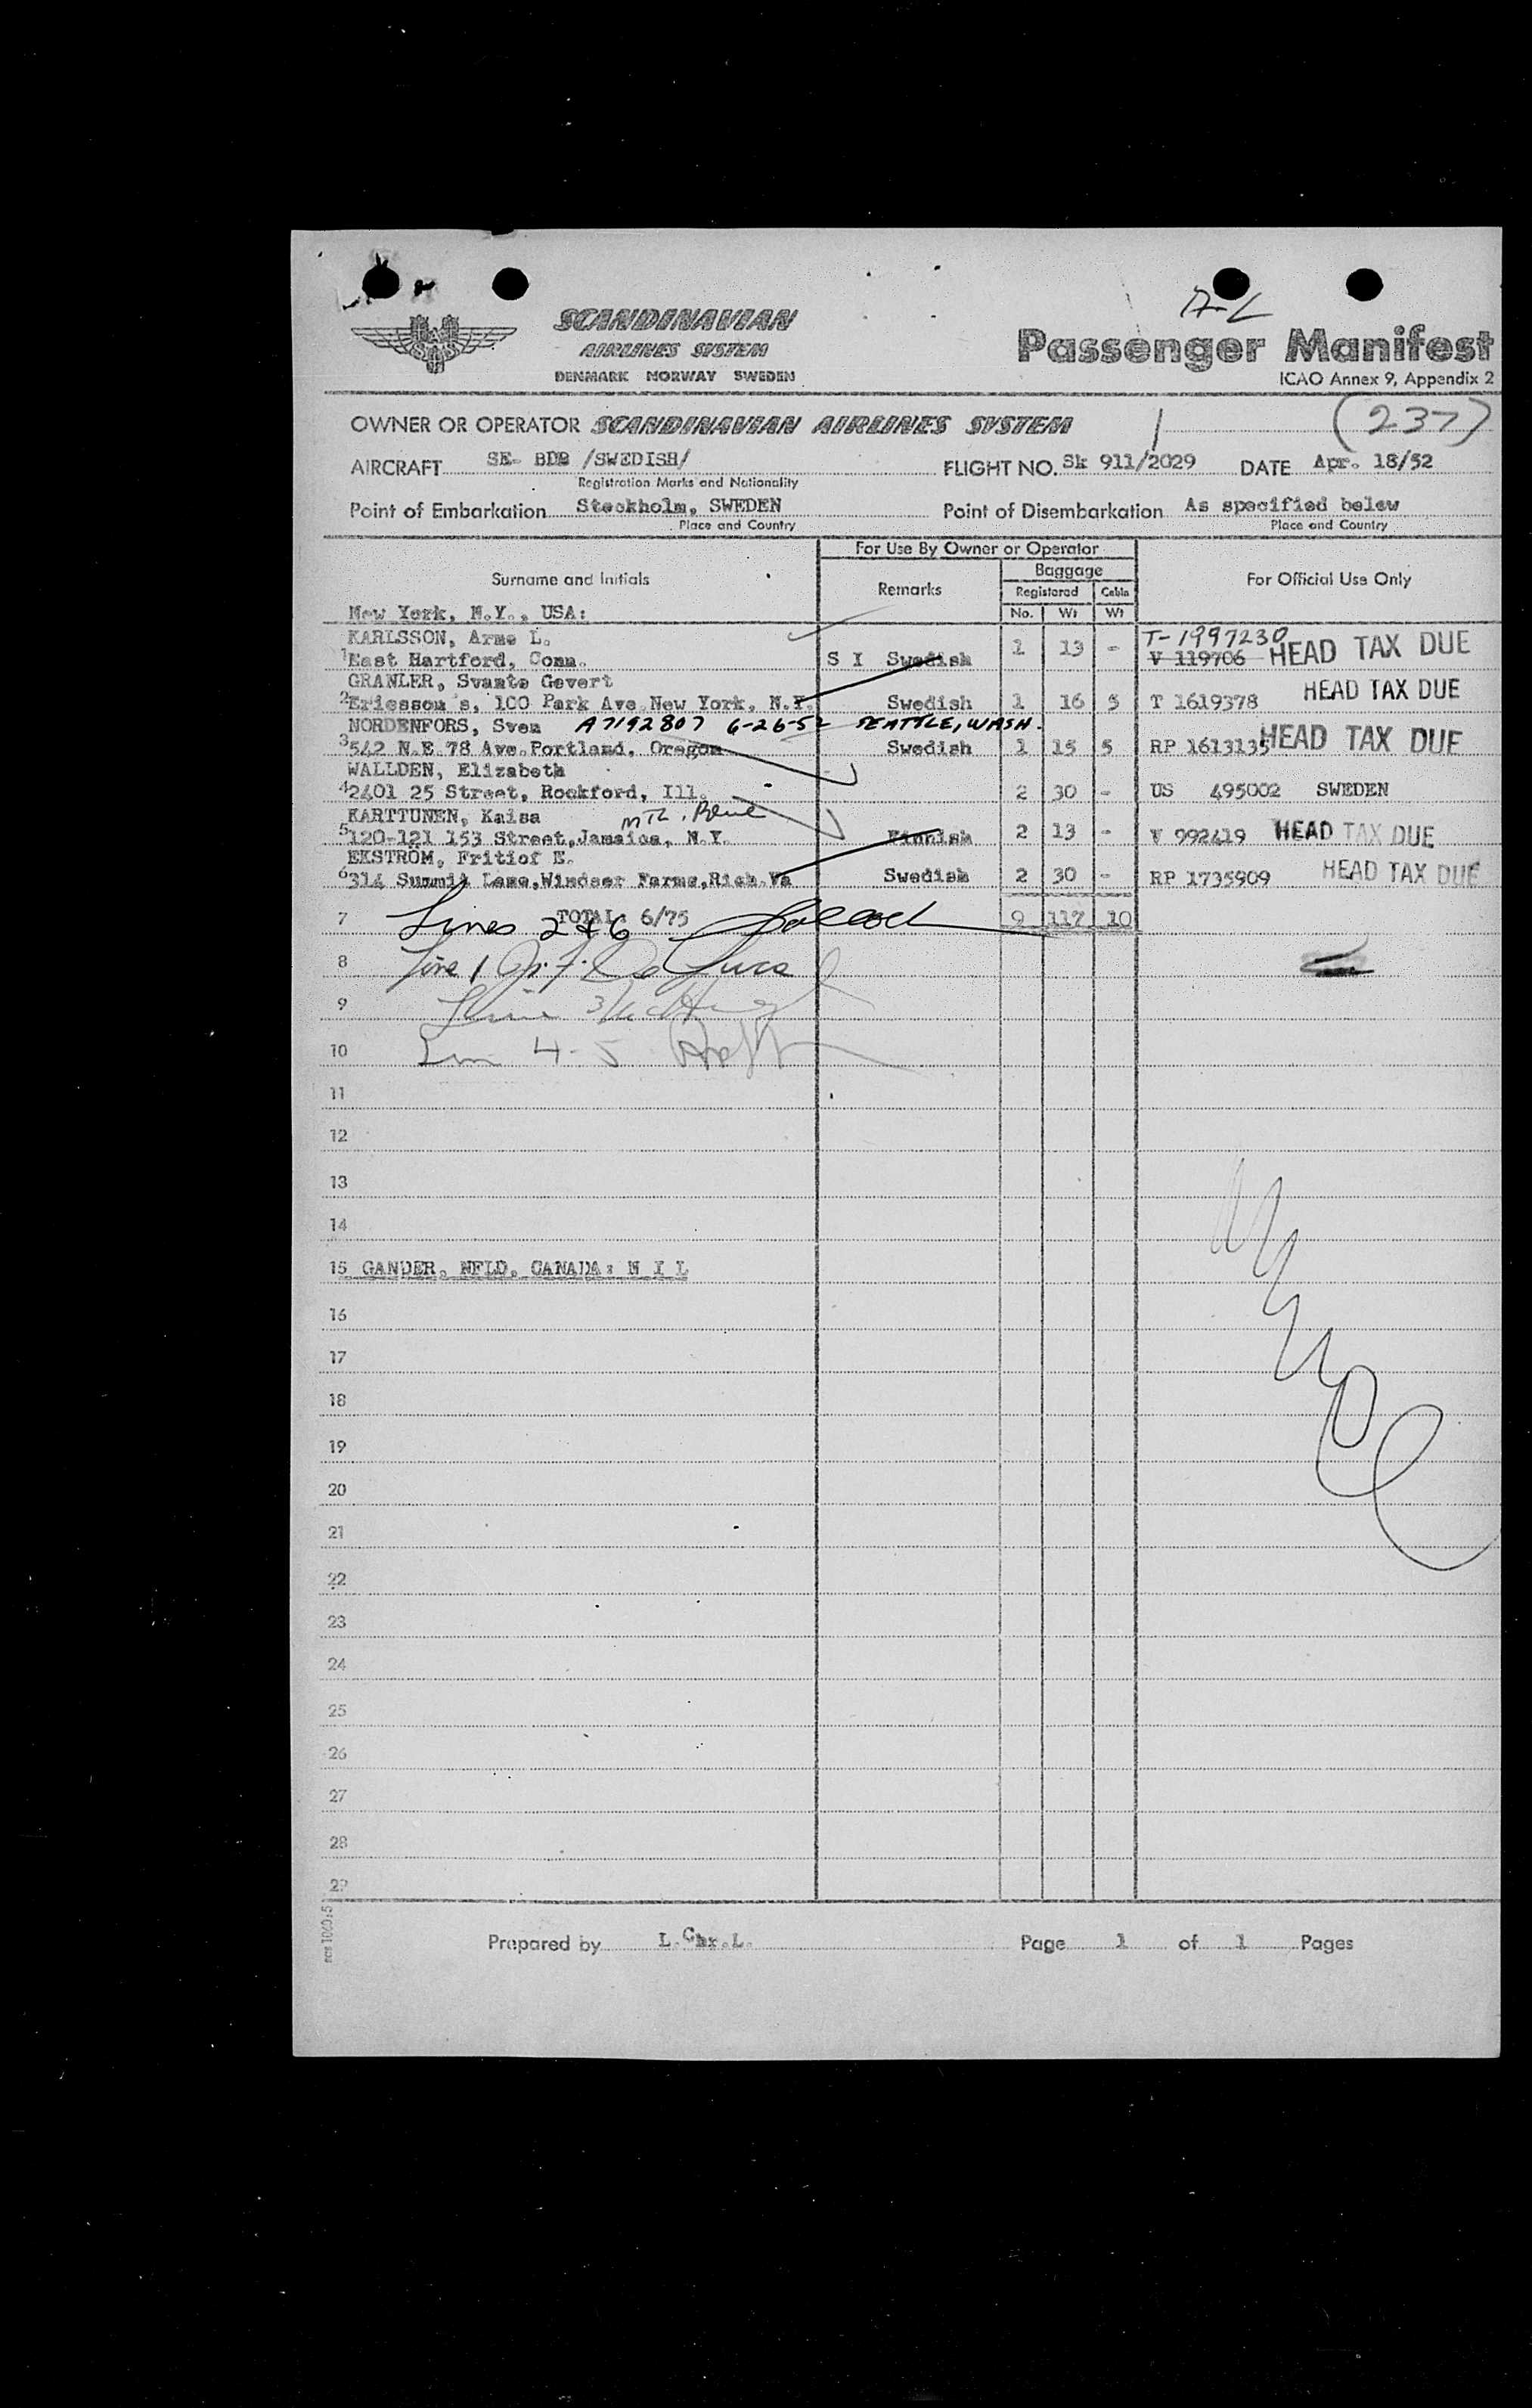 SCANDINAVIAN
AIRLINES SYSTEM
DENMARK NORWAY SWEDEN
Passenger Manifest
ICAO Annex 9, Appendix 2
(237)
OWNER OR OPERATOR SCANDINAVIAN AIRLINES SYSTEM
AIRCRAFT SE- BDB /SWEDISH/ FLIGHT NO. Sk 911/2029 DATE Apr. 18/52
Registration Marks and Nationality
Point of Embarkation Stockholm, SWEDEN Point of Disembarkation As specified below
Place and Country Place and Country
For Use By Owner or Operator
Surname and Initials Remarks Baggage For Official Use Only
Registered Cabin
No. Wt Wt
New York, N.Y., USA:
KARLSSON, Arne L. T-1997230
1 East Hartford, Conn. S I Swedish 1 13 - V 119706 HEAD TAX DUE
GRANLER, Svante Gevert
2 Ericsson's, 100 Park Ave New York, N.Y. Swedish 1 16 5 T 1619378 HEAD TAX DUE
NORDENFORS, Sven A7192807 6-26-52 SEATTLE, WASH.
3 542 N.E 78 Ave. Portland, Oregon Swedish 1 15 5 RP 1613135 HEAD TAX DUE
WALLDEN, Elizabeth
4 2401 25 Street, Rockford, Ill. 2 30 - US 495002 SWEDEN
KARTTUNEN, Kaisa
5 120-121 153 Street, Jamaica, N.Y. Finnish 2 13 - V 992419 HEAD TAX DUE
EKSTRÖM, Fritiof E.
6 314 Summit Lane, Windsor Farms, Rich. Va Swedish 2 30 - RP 1735909 HEAD TAX DUE
7 TOTAL: 6/75 9 117 10
Lines 2 & 6
8 Line 1
9
10 4-5
11
12
13
14
15 GANDER, NFLD, CANADA: N I L
16
17
18
19
20
21
22
23
24
25
26
27
28
29
Prepared by L.Chr.L. Page 1 of 1 Pages